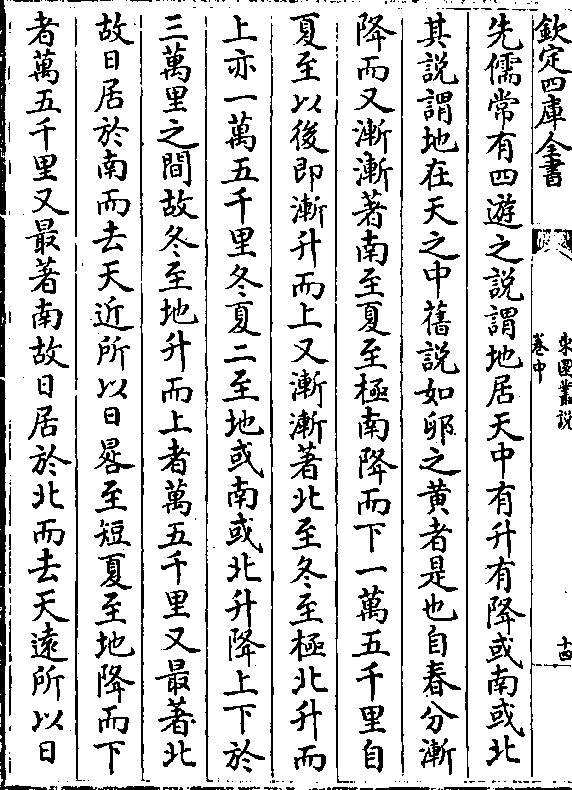 欽定四庫全書
東園叢說
卷中
十四
先儒常有四遊之說謂地居天中有升有降或南或北
其說謂地在天之中舊說如卵之黄者是也自春分漸
降而又漸漸著南至夏至極南降而下一萬五千里自
夏至以後即漸升而上又漸漸著北至冬至極北升而
上亦一萬五千里冬夏二至地或南或北升降上下於
三萬里之間故冬至地升而上者萬五千里又最著北
故日居於南而去天近所以日晷至短夏至地降而下
者萬五千里又最著南故日居於北而去天遠所以日